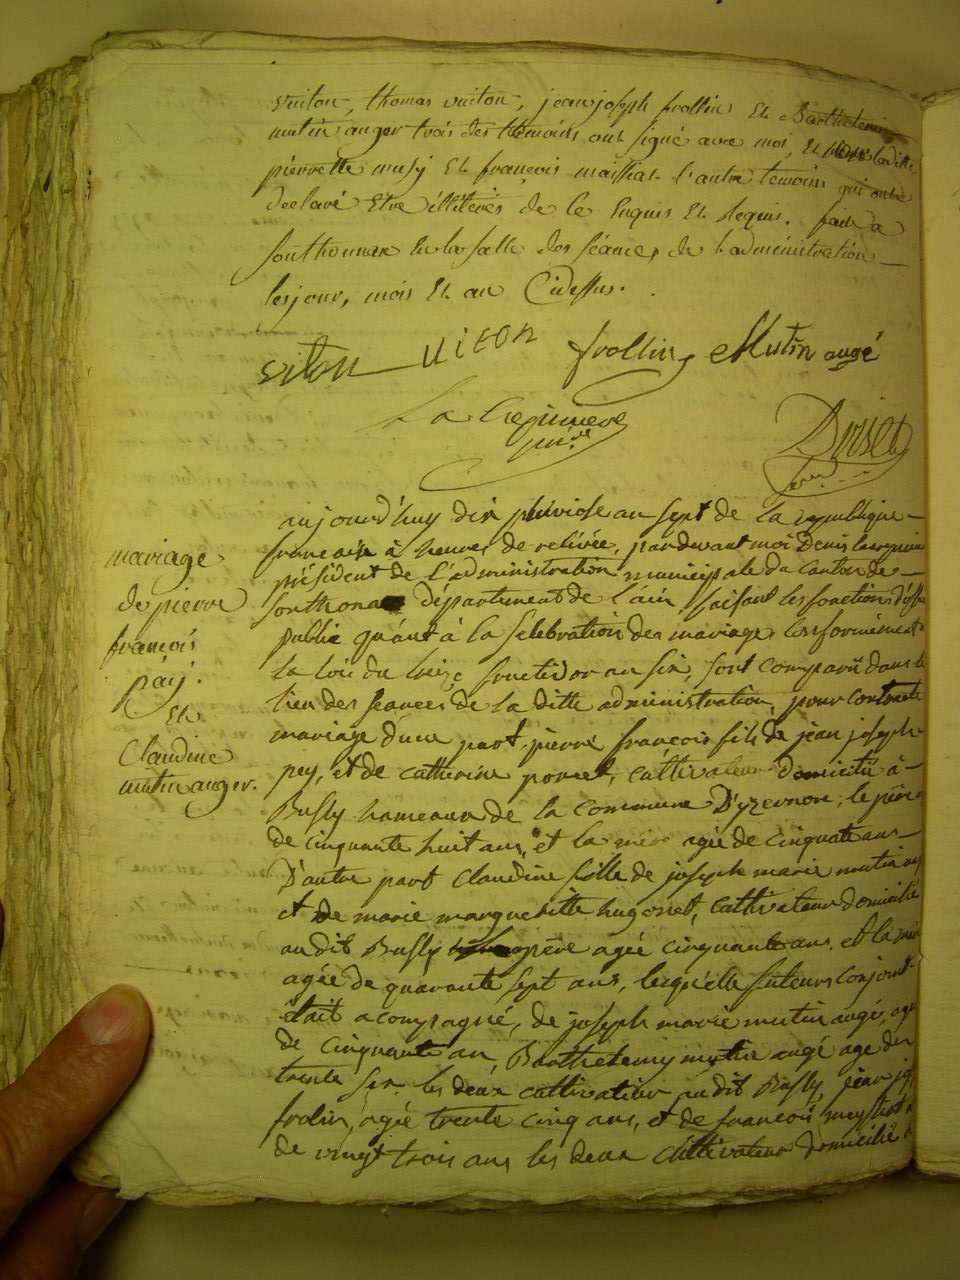 vuiton, thomas vuiton, jean joseph frollin Et Barthelemi
mutin auger trois des temoins ont signé avec moi, Et
pierrette musy Et françois maissiat l'autre temoins qui ont
declaré Etre illiterés de ce Enquis Et Requis. fait a
Sonthonnax En la salle des séances de l'administration
les jour, mois Et an Cidessus.
viton uiton frollin Mutin augé
La Crepiniere
Doiset
aujourd'huy dix pluviose an sept de la republique
francaise à heures de relivée, pardevant moi Denis
président de l'administration municipale du Canton de
Sonthonax département de l'ain, faisant les fonctions
public quant à la selebration des mariages Conformément
la loi du treize fructidor an six, sont comparü dans le
lieu des seances de la ditte administration, pour Contracté
mariage d'une part, pierre françois fils de jean joseph
pey, et de catherine poncet, cultivateur domicilié à
Bussy hameaux de la commune D'yzernon, le père
de cinquante huit ans, et la mère agée de cinquate ans
D'autre part Claudine fille de joseph marie mutin
et de marie margueritte hugonet, cultivateur domicilié
au dit Bussy père agée cinquante ans, et la mère
agée de quarante sept ans, lesqu'elle futeurs Conjoint
était acompagné, de joseph marie mutin augé, agé
de Cinquante an, Barthelemy mutin augé age de
trente six les deux cultivateur au dit Bussy, jean
frolin, agée trente cinq ans, et de françois
de vingt trois ans les deux cultivateur domicilié
mariage
de pierre
françois
paij.
Et
Claudine
mutin auger.